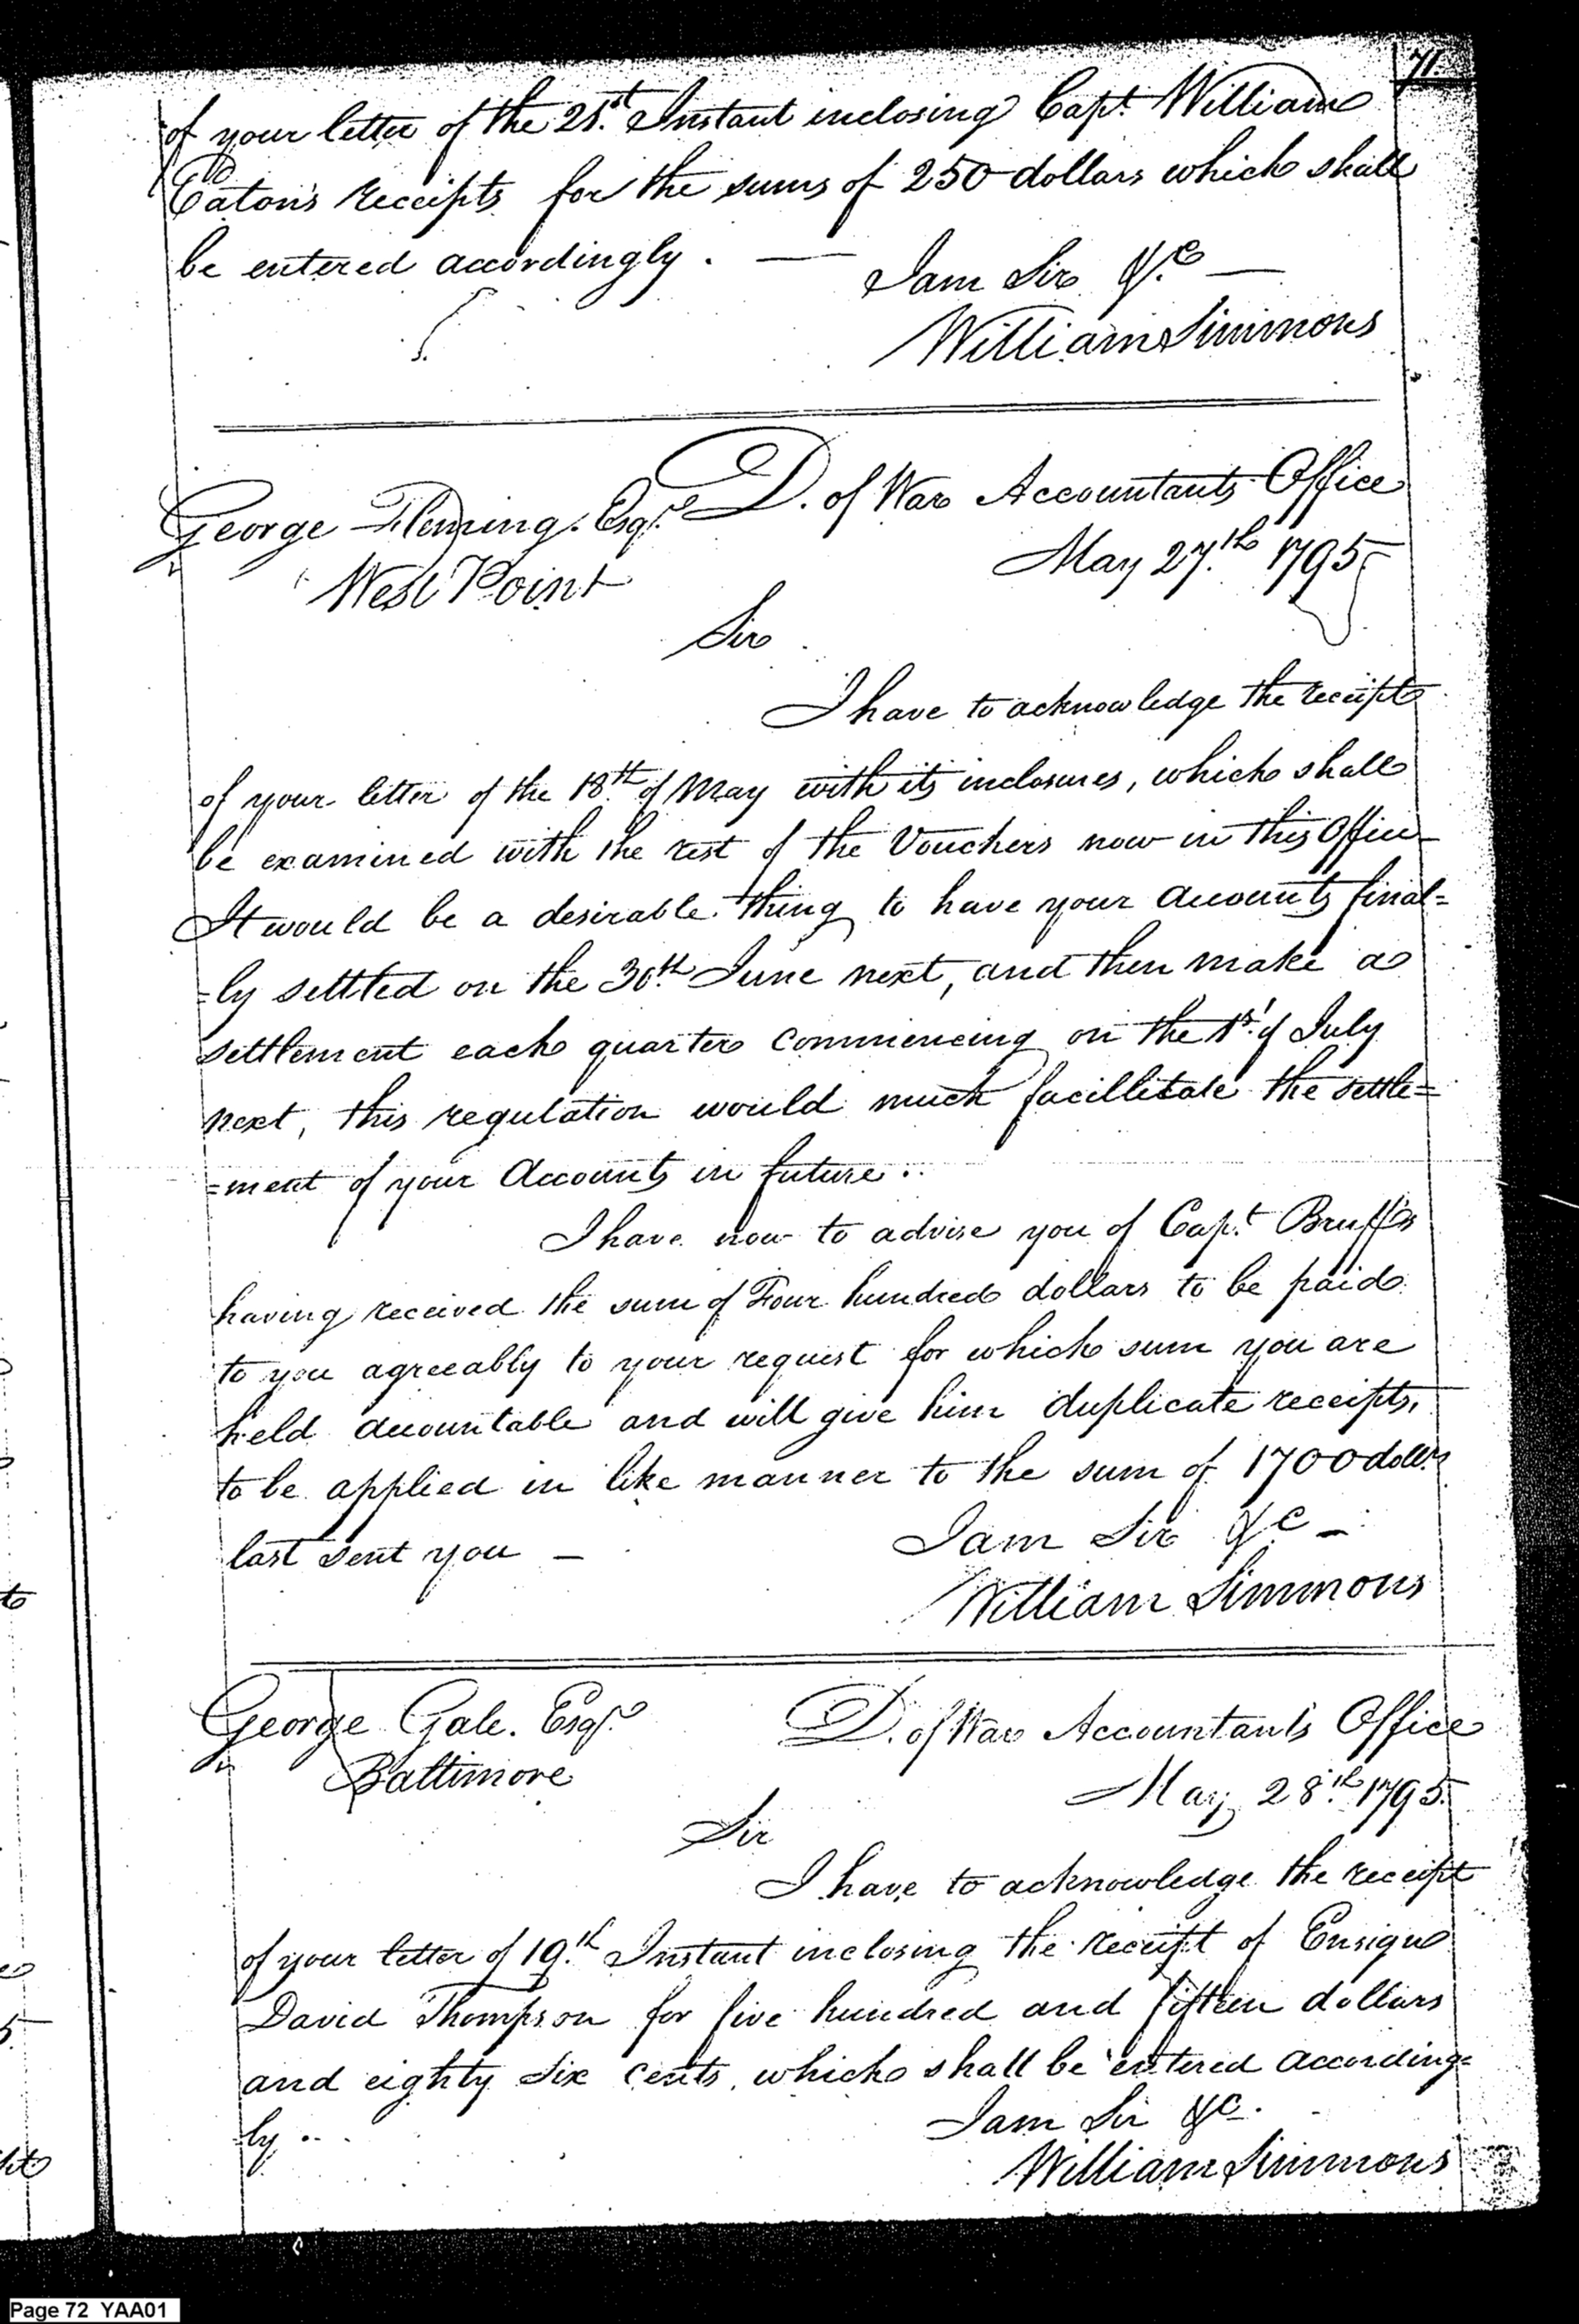 71.
of your letter of the 21st. Instant inclosing Capt. William
Eaton's receipts for the sums of 250 dollars which shall
be entered accordingly. —
I am Sir &c —
William Simmons
George Fleming. Esqr.
West Point
D. of War Accountants Office
May 27.th 1795
Sir
I have to acknowledge the receipt
of your letter of the 18th. of May with its inclosures, which shall
be examined with the rest of the Vouchers now in this Office
It would be a desirable thing to have your Accounts final=
=ly settled on the 30th. June next, and then make a
settlement each quarter commencing on the 1st. of July
next, this regulation would much facillitate the settle=
=ment of your Accounts in future..
I have now to advise you of Capt. Bruff's
having received the sum of Four hundred dollars to be paid
to you agreeably to your request for which sum you are
held accountable and will give him duplicate receipts,
to be applied in like manner to the sum of 1700 dollrs
last sent you —
I am Sir &c —
William Simmons
George Gale. Esqr.
Baltimore
D. of War Accountants Office
May 28.th 1795.
Sir
I have to acknowledge the receipt
of your letter of 19.th Instant inclosing the receipt of Ensign
David Thompson for five hundred and fifteen dollars
and eighty six cents, which shall be entered according=
=ly..
I am Sir &c.
William Simmons
Page 72 YAA01